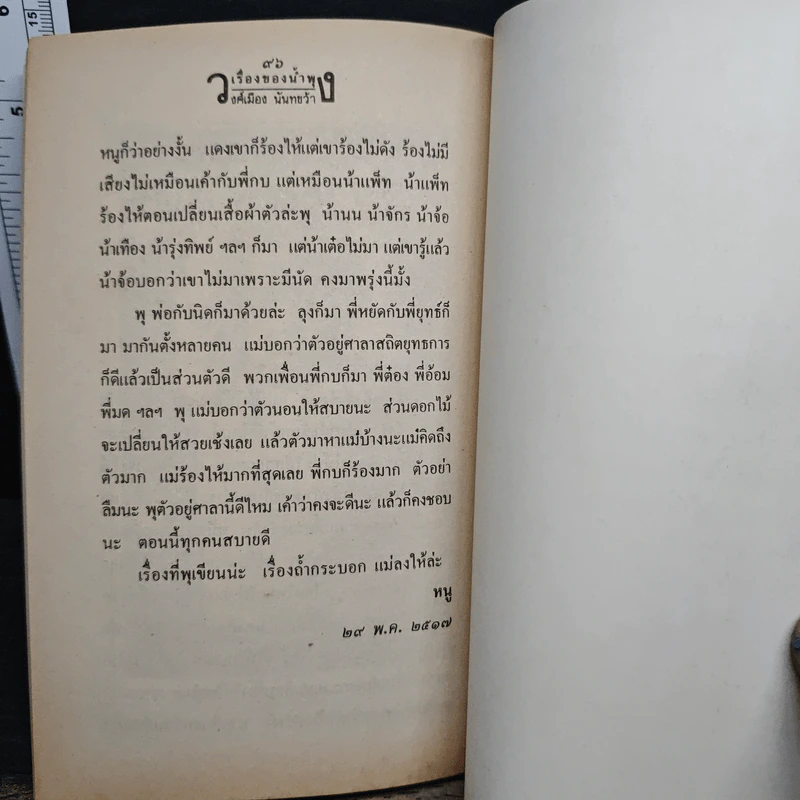 ๙๖
เรื่องของน้ำพุ
วงศ์เมือง นันทขว้าง
หนูก็ว่าอย่างงั้น แดงเขาก็ร้องไห้แต่เขาร้องไม่ดัง ร้องไม่มี
เสียงไม่เหมือนเค้ากับพี่กบ แต่เหมือนน้าแพ็ท น้าแพ็ท
ร้องไห้ตอนเปลี่ยนเสื้อผ้าตัวล่ะพุ น้านน น้าจักร น้าจ้อ
น้าเทือง น้ารุ่งทิพย์ ฯลฯ ก็มา แต่น้าเต๋อไม่มา แต่เขารู้แล้ว
น้าจ้อบอกว่าเขาไม่มาเพราะมีนัด คงมาพรุ่งนี้มั้ง
พุ พ่อกับนิดก็มาด้วยล่ะ ลุงก็มา พี่หยัดกับพี่ยุทธ์ก็
มา มากันตั้งหลายคน แม่บอกว่าตัวอยู่ศาลาสถิตยุทธการ
ก็ดีแล้วเป็นส่วนตัวดี พวกเพื่อนพี่กบก็มา พี่ต๋อง พี่อ้อม
พี่มด ฯลฯ พุ แม่บอกว่าตัวนอนให้สบายนะ ส่วนดอกไม้
จะเปลี่ยนให้สวยเช้งเลย แล้วตัวมาหาแม่บ้างนะแม่คิดถึง
ตัวมาก แม่ร้องไห้มากที่สุดเลย พี่กบก็ร้องมาก ตัวอย่า
ลืมนะ พุตัวอยู่ศาลานี้ดีไหม เค้าว่าคงจะดีนะ แล้วก็คงชอบ
นะ ตอนนี้ทุกคนสบายดี
เรื่องที่พุเขียนน่ะ เรื่องถ้ำกระบอก แม่ลงให้ล่ะ
หนู
๒๙ พ.ค. ๒๕๑๗
5
15